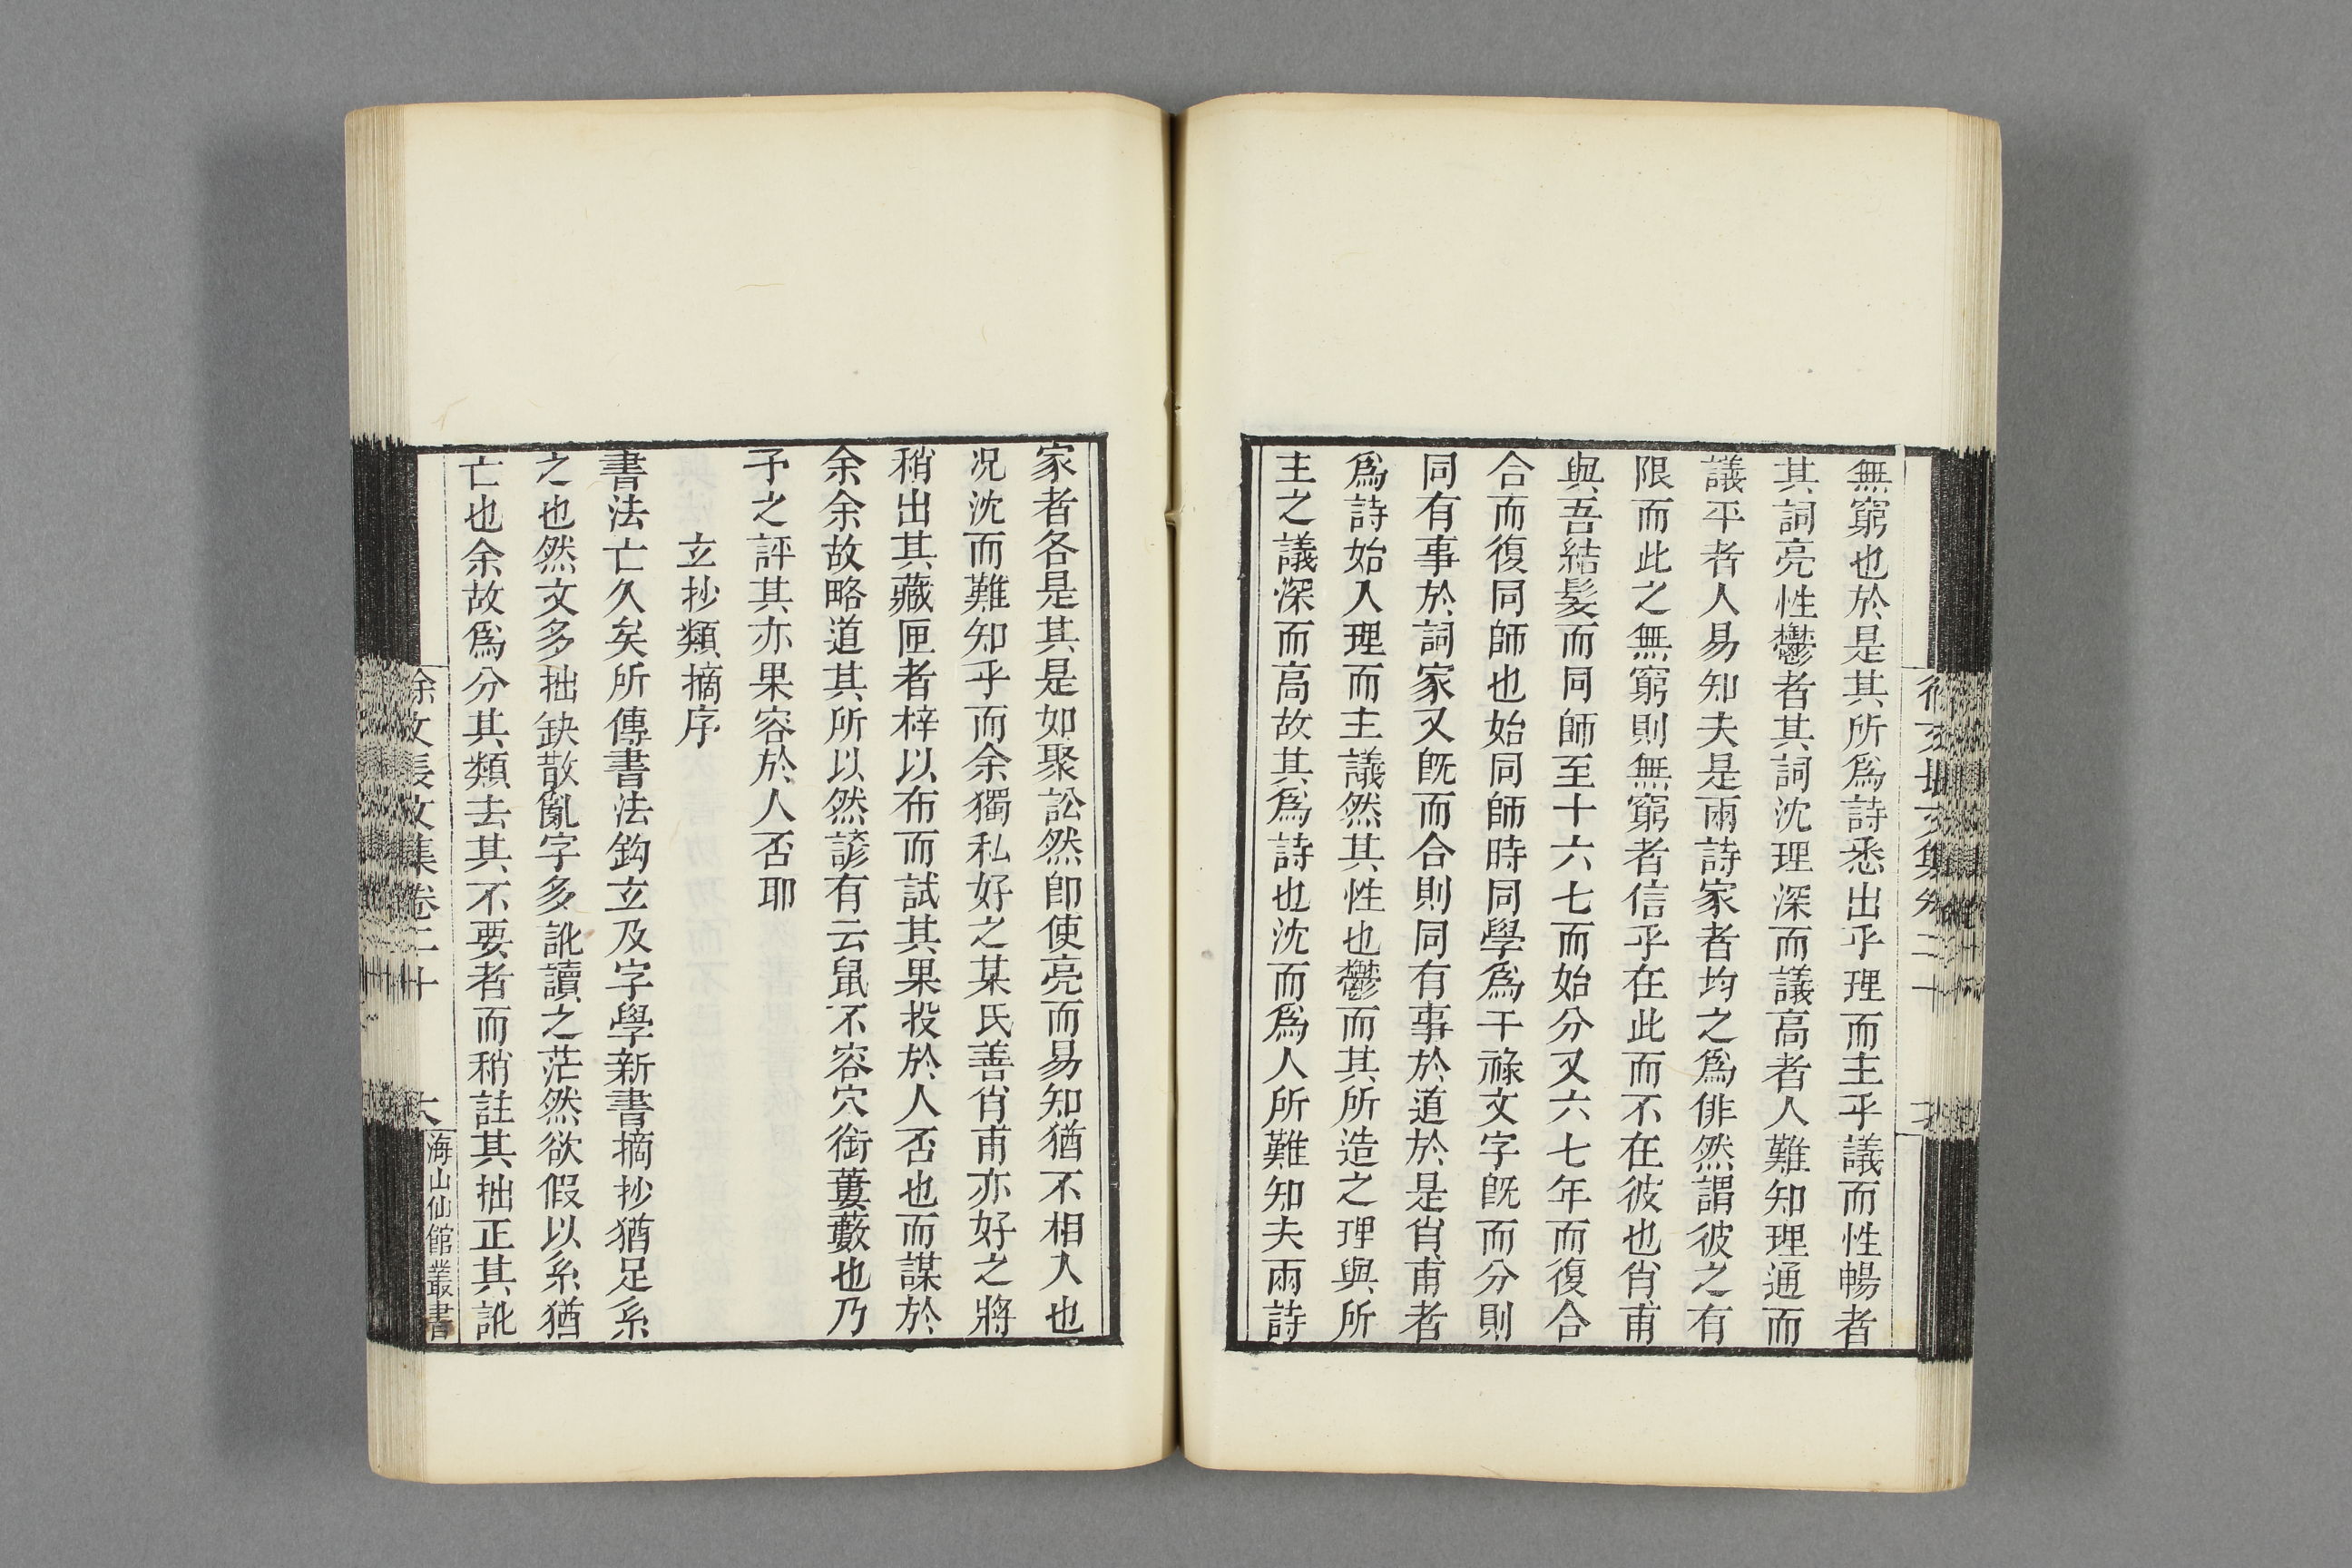 無窮也於是其所爲詩悉出乎理而主乎議而性暢者
其詞亮性鬱者其詞沈理深而議高者人難知理通而
議平者人易知夫是兩詩家者均之爲俳然謂彼之有
限而此之無窮則無窮者信乎在此而不在彼也肖甫
與吾結髮而同師至十六七而始分又六七年而復合
合而復同師也始同師時同學爲干祿文字旣而分則
同有事於詞家又旣而合則同有事於道於是肖甫者
爲詩始入理而主議然其性也鬱而其所造之理與所
主之議深而高故其爲詩也沈而爲人所難知夫兩詩
家者各是其是如聚訟然卽使亮而易知猶不相入也
况沈而難知乎而余獨私好之某氏善肖甫亦好之將
稍出其藏匣者梓以布而試其果投於人否也而謀於
余余故略道其所以然諺有云鼠不容穴銜蔞藪也乃
予之評其亦果容於人否耶
玄抄類摘序
書法亡久矣所傳書法鉤玄及字學新書摘抄猶足系
之也然文多拙缺散亂字多訛讀之茫然欲假以系猶
亡也余故爲分其類去其不要者而稍註其拙正其訛
徐文長文集卷二十
海山仙館叢書